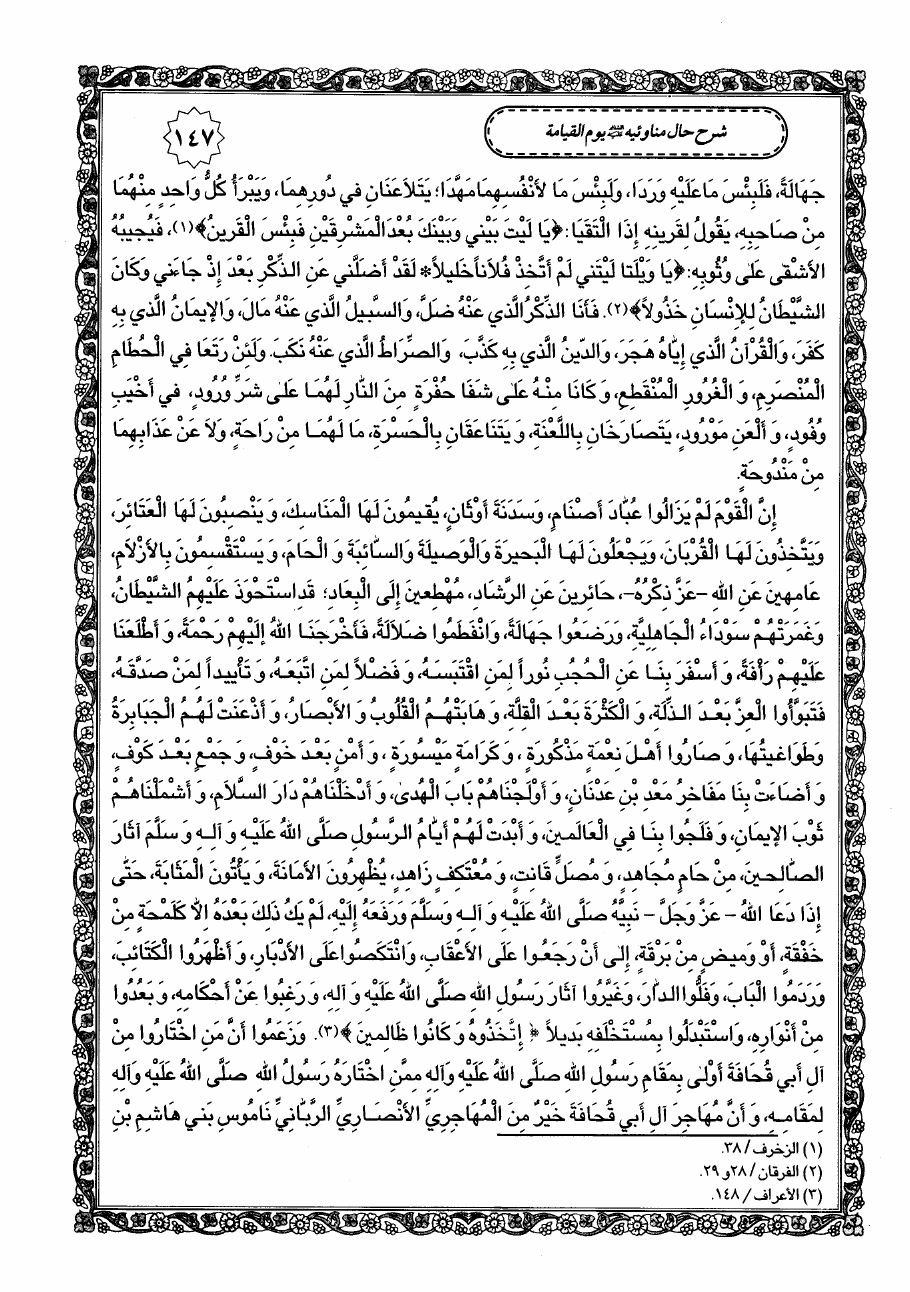 شرح حال مناوئيه يوم القيامة
١٤٧
جَهَالَةً، فَلَبِئْسَ مَا عَلَيْهِ وَرَدَا، وَلَبِئْسَ مَا لأَنْفُسِهِمَا مَهَّدَا؛ يَتَلاَعَنَانِ في دُورِهِمَا، وَيَبْرَأُ كُلُّ وَاحِدٍ مِنْهُمَا
مِنْ صَاحِبِهِ، يَقُولُ لِقَرينِهِ إذَا الْتَقَيَا: ﴿يَا لَيْتَ بَيْني وَبَيْنَكَ بُعْدَ الْمَشْرِقَيْنِ فَبِئْسَ الْقَرينُ﴾(١)، فَيُجيبُهُ
الأَشْقى عَلى وُثُوبِهِ: ﴿يَا وَيْلَتَا لَيْتَني لَمْ أَتَّخِذْ فُلاَناً خَليلاً* لَقَدْ أَضَلَّني عَنِ الذِّكْرِ بَعْدَ إِذْ جَاءَني وَكَانَ
الشَّيْطَانُ لِلإنْسَانِ خَذُولاً﴾(٢). فَأَنَا الذِّكْرُ الَّذي عَنْهُ ضَلَّ، وَالسَّبيلُ الَّذي عَنْهُ مَالَ، وَالإيمَانُ الَّذي بِهِ
كَفَرَ، وَالْقُرْآنُ الَّذي إِيَّاهُ هَجَرَ، وَالدّينُ الَّذي بِهِ كَذَّبَ، وَالصِّرَاطُ الَّذي عَنْهُ نَكَبَ. وَلَئِنْ رَتَعَا فِي الْحُطَامِ
الْمُنْصَرِمِ، وَ الْغُرُورِ الْمُنْقَطِعِ، وَ كَانَا مِنْهُ عَلى شَفَا حُفْرَةٍ مِنَ النَّارِ لَهُمَا عَلى شَرِّ وُرُودٍ، في أَخْيَبِ
وُفُودٍ، وَ أَلْعَنِ مَوْرُودٍ، يَتَصَارَخَانِ بِاللَّعْنَةِ، وَ يَتَنَاعَقَانِ بِالْحَسْرَةِ، مَا لَهُمَا مِنْ رَاحَةٍ، وَلاَ عَنْ عَذَابِهِمَا
مِنْ مَنْدُوحَةٍ.
إِنَّ الْقَوْمَ لَمْ يَزَالُوا عُبَّادَ أَصْنَامٍ، وَسَدَنَةَ أَوْثَانٍ، يُقيمُونَ لَهَا الْمَنَاسِكَ، وَ يَنْصِبُونَ لَهَا الْعَتَائِرَ،
وَيَتَّخِذُونَ لَهَا الْقُرْبَانَ، وَيَجْعَلُونَ لَهَا الْبَحيرَةَ وَالْوَصيلَةَ وَالسَّائِبَةَ وَ الْحَامَ، وَ يَسْتَقْسِمُونَ بِالأَزْلاَمِ،
عَامِهينَ عَنِ اللهِ -عَزَّ ذِكْرُهُ-، حَائِرينَ عَنِ الرَّشَادِ، مُهْطِعينَ إِلَى الْبِعَادِ؛ قَدِ اسْتَحْوَذَ عَلَيْهِمُ الشَّيْطَانُ،
وَغَمَرَتْهُمْ سَوْدَاءُ الْجَاهِلِيَّةِ، وَرَضَعُوا جَهَالَةً، وَانْفَطَمُوا ضَلاَلَةً، فَأَخْرَجَنَا اللهُ إِلَيْهِمْ رَحْمَةً، وَ أَطْلَعَنَا
عَلَيْهِمْ رَأْفَةً، وَ أَسْفَرَ بِنَا عَنِ الْحُجُبِ نُوراً لِمَنِ اقْتَبَسَهُ، وَ فَضْلاً لِمَنِ اتَّبَعَهُ، وَ تَأْييداً لِمَنْ صَدَّقَهُ،
فَتَبَوَّأُوا الْعِزَّ بَعْدَ الذِّلَّةِ، وَ الْكَثْرَةَ بَعْدَ الْقِلَّةِ، وَ هَابَتْهُمُ الْقُلُوبُ وَ الأَبْصَارُ، وَ أَذْعَنَتْ لَهُمُ الْجَبَابِرَةُ
وَطَوَاغيتُهَا، وَ صَارُوا أَهْلَ نِعْمَةٍ مَذْكُورَةٍ، وَ كَرَامَةٍ مَيْسُورَةٍ، وَ أَمْنٍ بَعْدَ خَوْفٍ، وَ جَمْعٍ بَعْدَ كَوْفٍ،
وَ أَضَاءَتْ بِنَا مَفَاخِرُ مَعَدِّ بْنِ عَدْنَانَ، وَ أَوْلَجْنَاهُمْ بَابَ الْهُدى، وَ أَدْخَلْنَاهُمْ دَارَ السَّلاَمِ، وَ أَشْمَلْنَاهُمْ
ثَوْبَ الإيمَانِ، وَ فَلَجُوا بِنَا فِي الْعَالَمينَ، وَ أَبْدَتْ لَهُمْ أَيَّامُ الرَّسُولِ صَلَّى اللهُ عَلَيْهِ وَ آلِهِ وَ سَلَّمَ آثَارَ
الصَّالِحينَ، مِنْ حَامٍ مُجَاهِدٍ، وَ مُصَلٍّ قَانِتٍ، وَ مُعْتَكِفٍ زَاهِدٍ، يُظْهِرُونَ الأَمَانَةَ، وَ يَأْتُونَ الْمَثَابَةَ، حَتّى
إِذَا دَعَا اللهُ - عَزَّ وَجَلَّ - نَبِيَّهُ صَلَّى اللهُ عَلَيْهِ وَ آلِهِ وَ سَلَّمَ وَرَفَعَهُ إِلَيْهِ، لَمْ يَكُ ذَلِكَ بَعْدَهُ إِلاَّ كَلَمْحَةٍ مِنْ
خَفْقَةٍ، أَوْ وَميضٍ مِنْ بَرْقَةٍ، إِلى أَنْ رَجَعُوا عَلَى الأَعْقَابِ، وَانْتَكَصُوا عَلَى الأَدْبَارِ، وَ أَظْهَرُوا الْكَتَائِبَ،
وَرَدَمُوا الْبَابَ، وَفَلُّوا الدَّارَ، وَغَيَّرُوا آثَارَ رَسُولِ اللهِ صَلَّى اللهُ عَلَيْهِ وَ آلِهِ، وَ رَغِبُوا عَنْ أَحْكَامِهِ، وَ بَعُدُوا
مِنْ أَنْوَارِهِ، وَاسْتَبْدَلُوا بِمُسْتَخْلَفِهِ بَديلاً ﴿ إِتَّخَذُوهُ وَ كَانُوا ظَالِمينَ ﴾(٣). وَزَعَمُوا أَنَّ مَنِ اخْتَارُوا مِنْ
آلِ أَبي قُحَافَةَ أَوْلى بِمَقَامِ رَسُولِ اللهِ صَلَّى اللهُ عَلَيْهِ وَآلِهِ مِمَّنِ اخْتَارَهُ رَسُولُ اللهِ صَلَّى اللهُ عَلَيْهِ وَآلِهِ
لِمَقَامِهِ، وَ أَنَّ مُهَاجِرَ آلِ أَبي قُحَافَةَ خَيْرٌ مِنَ الْمُهَاجِرِيِّ الأَنْصَارِيِّ الرَّبَّانِيِّ نَامُوسِ بَني هَاشِمِ بْنِ
(١) الزخرف / ٣٨.
(٢) الفرقان / ٢٨ و ٢٩.
(٣) الأعراف / ١٤٨.